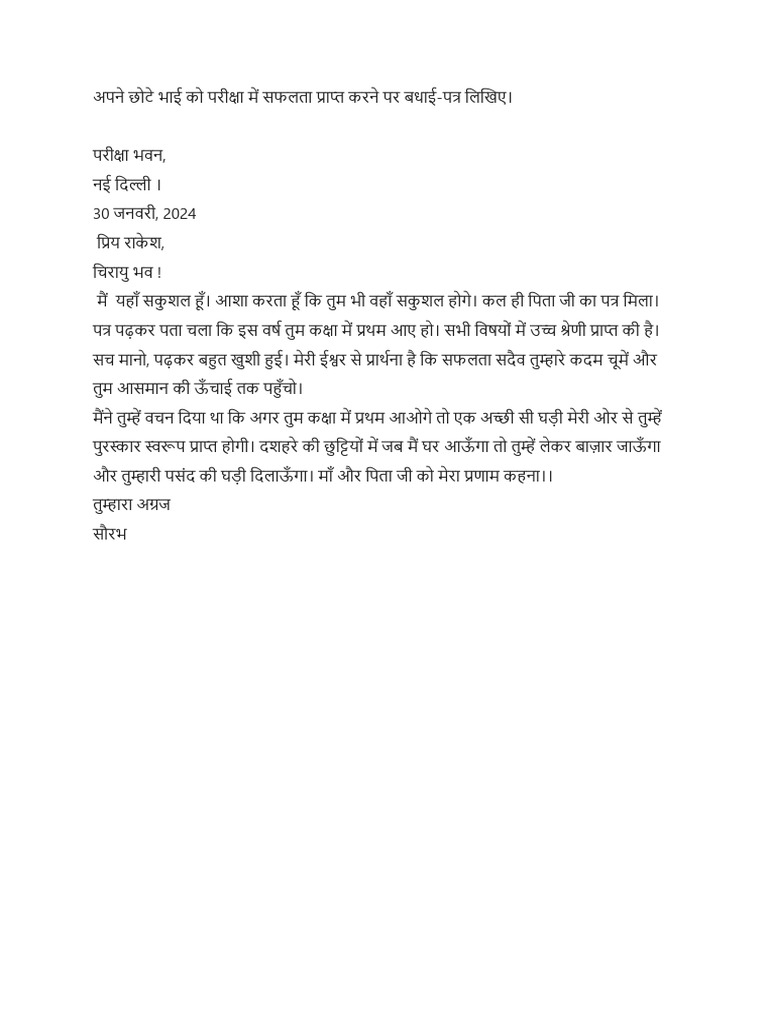 अपने छोटे भाई को परीक्षा में सफलता प्राप्त करने पर बधाई-पत्र लिखिए।
परीक्षा भवन,
नई दिल्ली ।
30 जनवरी, 2024
प्रिय राकेश,
चिरायु भव !
मैं  यहाँ सकुशल हूँ। आशा करता हूँ कि तुम भी वहाँ सकुशल होगे। कल ही पिता जी का पत्र मिला।
पत्र पढ़कर पता चला कि इस वर्ष तुम कक्षा में प्रथम आए हो। सभी विषयों में उच्च श्रेणी प्राप्त की है।
सच मानो, पढ़कर बहुत खुशी हुई। मेरी ईश्वर से प्रार्थना है कि सफलता सदैव तुम्हारे कदम चूमें और
तुम आसमान की ऊँचाई तक पहुँचो।
मैंने तुम्हें वचन दिया था कि अगर तुम कक्षा में प्रथम आओगे तो एक अच्छी सी घड़ी मेरी ओर से तुम्हें
पुरस्कार स्वरूप प्राप्त होगी। दशहरे की छुट्टियों में जब मैं घर आऊँगा तो तुम्हें लेकर बाज़ार जाऊँगा
और तुम्हारी पसंद की घड़ी दिलाऊँगा। माँ और पिता जी को मेरा प्रणाम कहना।।
तुम्हारा अग्रज
सौरभ